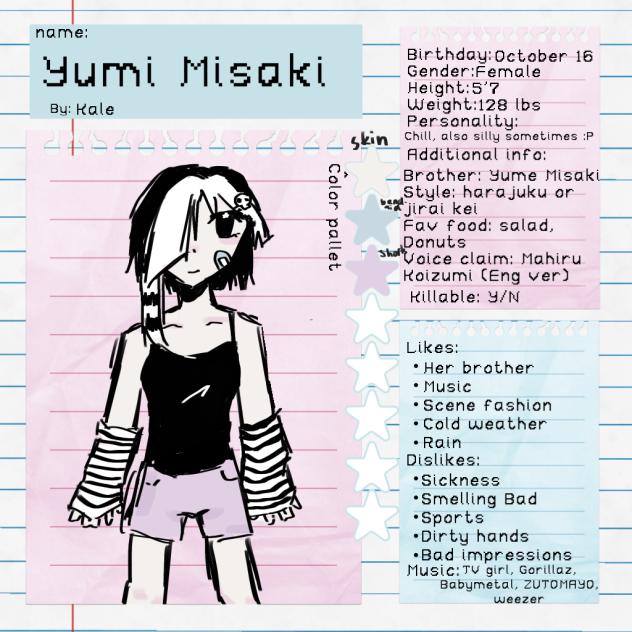 name:
Yumi Misaki
By: Kale
skin
^
Color pallet
band aid
Short
Birthday:October 16
Gender:Female
Height:5'7
Weight:128 lbs
Personality:
Chill, also silly sometimes :P
Additional info:
Brother: Yume Misaki
Style: harajuku or
jirai kei
Fav food: salad,
Donuts
Voice claim: Mahiru
Koizumi (Eng ver)
Killable: Y/N
Likes:
•Her brother
•Music
•Scene fashion
•Cold weather
•Rain
Dislikes:
•Sickness
•Smelling Bad
•Sports
•Dirty hands
•Bad impressions
Music:TV girl, Gorillaz,
Babymetal, ZUTOMAYO,
weezer